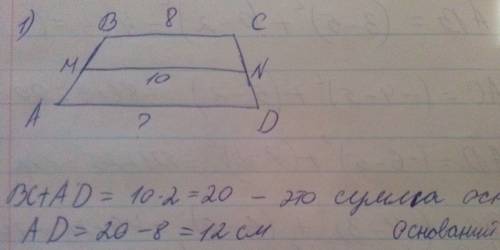 1)
B 8 C
M 10 N
A ? D
BC+AD = 10·2 = 20 – это сумма осн
AD = 20 – 8 = 12 см Оснований